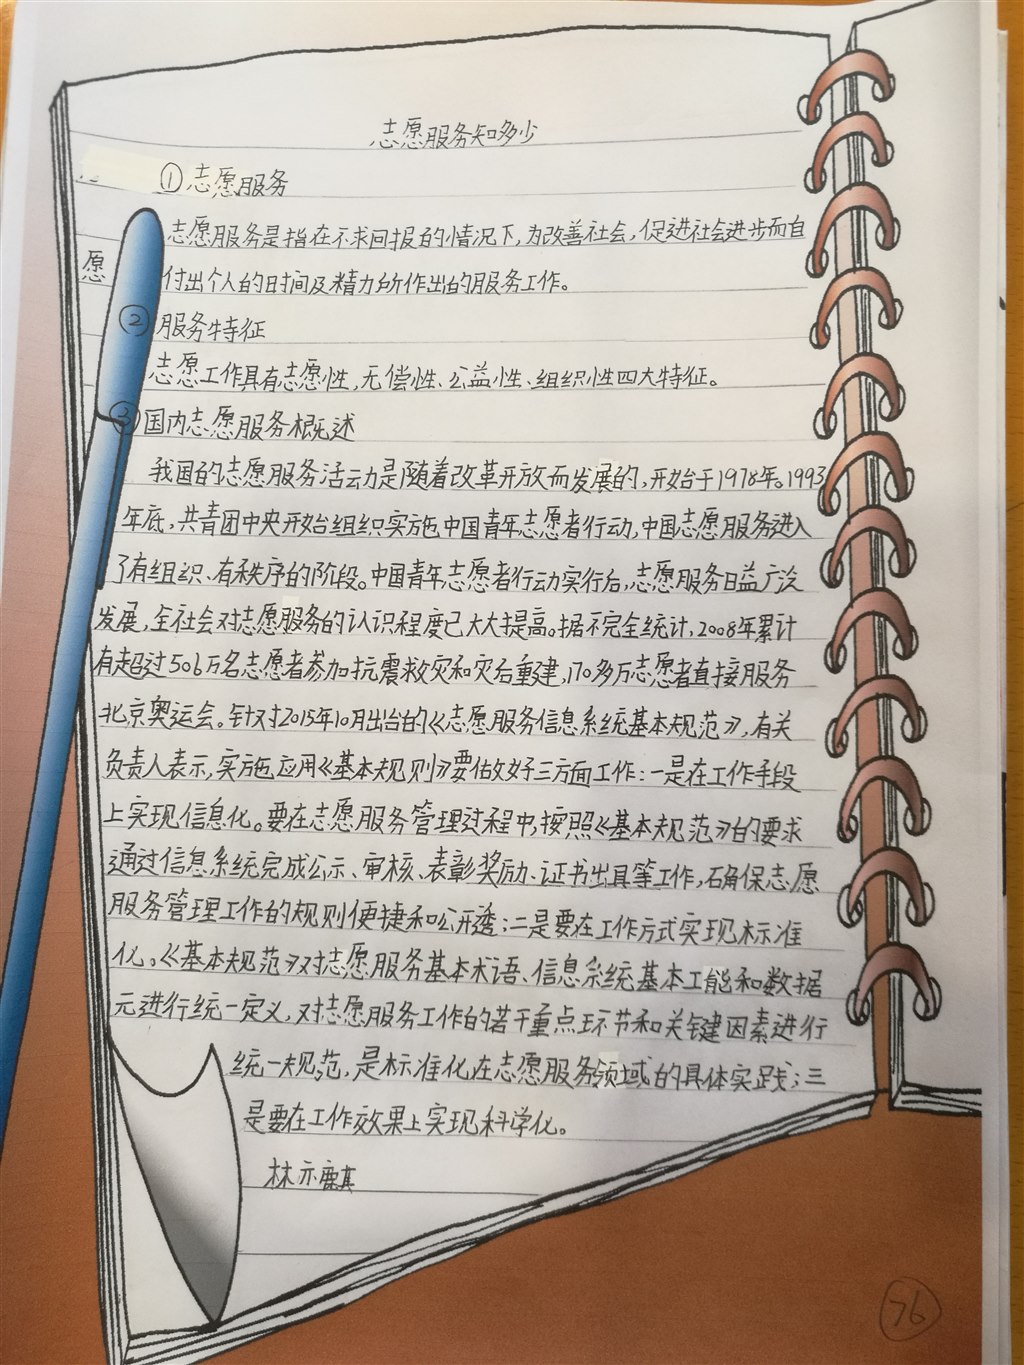 志愿服务知多少
①志愿服务
志愿服务是指在不求回报的情况下,为改善社会,促进社会进步而自
愿 付出个人的时间及精力所作出的服务工作。
② 服务特征
志愿工作具有志愿性,无偿性、公益性、组织性四大特征。
③国内志愿服务概述
我国的志愿服务活动是随着改革开放而发展的,开始于1978年。1993
年底,共青团中央开始组织实施中国青年志愿者行动,中国志愿服务进入
了有组织、有秩序的阶段。中国青年志愿者行动实行后,志愿服务日益广泛
发展,全社会对志愿服务的认识程度已大大提高。据不完全统计,2008年累计
有超过506万名志愿者参加抗震救灾和灾后重建,170多万志愿者直接服务
北京奥运会。针对2015年10月出台的《志愿服务信息系统基本规范》,有关
负责人表示,实施应用《基本规则》要做好三方面工作:一是在工作手段
上实现信息化。要在志愿服务管理过程中,按照《基本规范》的要求
通过信息系统完成公示、审核、表彰奖励、证书出具等工作,确保志愿
服务管理工作的规则便捷和公开透;二是要在工作方式实现标准
化。《基本规范》对志愿服务基本术语、信息系统基本工能和数据
元进行统一定义,对志愿服务工作的若干重点环节和关键因素进行
统一规范,是标准化在志愿服务领域的具体实践;三
是要在工作效果上实现科学化。
林亦麒
76